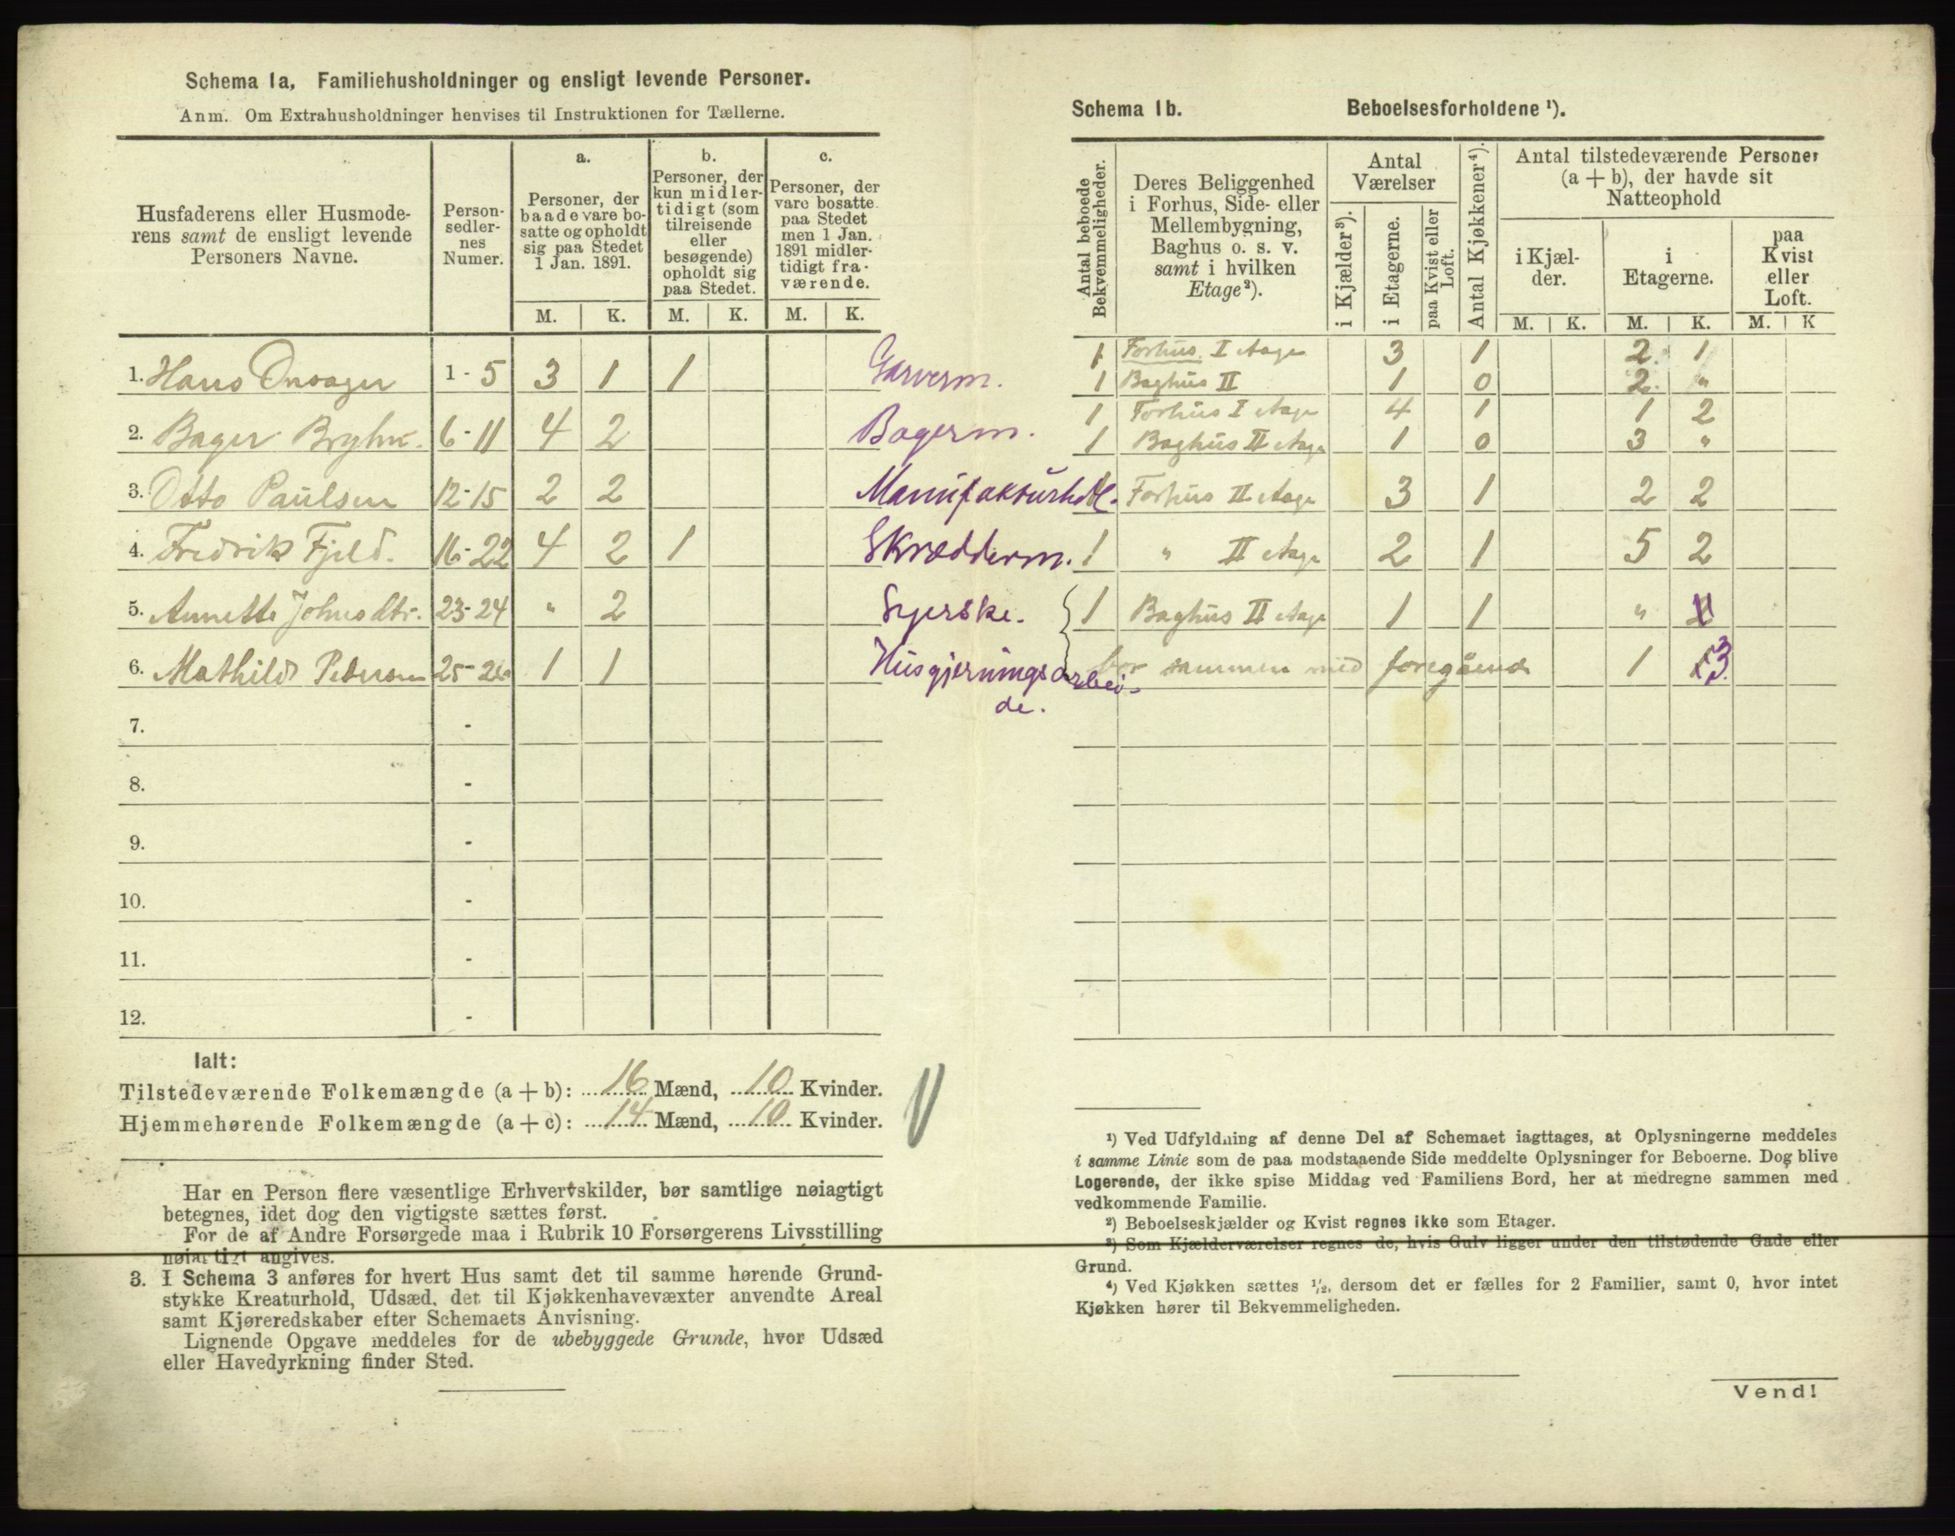 Schema 1a, Familiehusholdninger og ensligt levende Personer.
Anm. Om Extrahusholdninger henvises til Instruktionen for Tællerne.
Husfaderens eller Husmode-
rens samt de ensligt levende
Personers Navne.
Person-
sedler-
nes
Numer.
a.
Personer, der
baade vare bo-
satte og opholdt
sig paa Stedet
1 Jan. 1891.
b.
Personer, der
kun midler-
tidigt (som
tilreisende
eller
besøgende)
opholdt sig
paa Stedet.
c.
Personer, der
vare bosatte
paa Stedet
men 1 Jan.
1891 midler-
tidigt fra-
værende.
M. K. M. K. M. K.
1. Hans 1 - 5 3 1 1 Garverm.
2. Bager Bryhn. 6-11 4 2 Bagerm.
3. Otto Paulsen 12-15 2 2 Manufakturhdl.
4. Fredrik Fjeld. 16-22 4 2 1 Skrædderm.
5. Annette Johnsdtr. 23-24 " 2 Syerske.
6. Mathilde Pedersen 25-26 1 1 Husgjerningsarbei-
de.
7. -
8. -
9. -
10. -
11. -
12. -
Ialt:
Tilstedeværende Folkemængde (a + b): 16 Mænd, 10 Kvinder.
Hjemmehørende Folkemængde (a + c): 14 Mænd, 10 Kvinder.
Har en Person flere væsentlige Erhvervskilder, bør samtlige nøiagtigt
betegnes, idet dog den vigtigste sættes først.
For de af Andre Forsørgede maa i Rubrik 10 Forsørgerens Livsstilling
nøiagtigt angives.
3. I Schema 3 anføres for hvert Hus samt det til samme hørende Grund-
stykke Kreaturhold, Udsæd, det til Kjøkkenhavevæxter anvendte Areal
samt Kjøreredskaber efter Schemaets Anvisning.
Lignende Opgave meddeles for de ubebyggede Grunde, hvor Udsæd
eller Havedyrkning finder Sted.
Schema 1b. Beboelsesforholdene ¹).
Antal beboede
Bekvemmeligheder.
Deres Beliggenhed
i Forhus, Side- eller
Mellembygning,
Baghus o. s. v.
samt i hvilken
Etage²).
Antal
Værelser
i Kjælder³).
i Etagerne.
paa Kvist eller
Loft.
Antal Kjøkkener⁴).
Antal tilstedeværende Personer
(a + b), der havde sit
Natteophold
i Kjæl-
der.
i
Etagerne.
paa
Kvist
eller
Loft.
M. K. M. K. M. K
1 Forhus I Etage 3 1 2 1
1 Baghus II 1 0 2 "
1 Forhus I Etage 4 1 1 2
1 Baghus II Etage 1 0 3 "
1 Forhus II Etage 3 1 2 2
1 " II Etage 2 1 5 2
1 Baghus II Etage 1 1 "
bor sammen med foregående 1 3
¹) Ved Udfyldning af denne Del af Schemaet iagttages, at Oplysningerne meddeles
i samme Linie som de paa modstaaende Side meddelte Oplysninger for Beboerne. Dog blive
Logerende, der ikke spise Middag ved Familiens Bord, her at medregne sammen med
vedkommende Familie.
²) Beboelseskjælder og Kvist regnes ikke som Etager.
³) Som Kjælderværelser regnes de, hvis Gulv ligger under den tilstødende Gade eller
Grund.
⁴) Ved Kjøkken sættes ¹/₂, dersom det er fælles for 2 Familier, samt 0, hvor intet
Kjøkken hører til Bekvemmeligheden.
Vend!